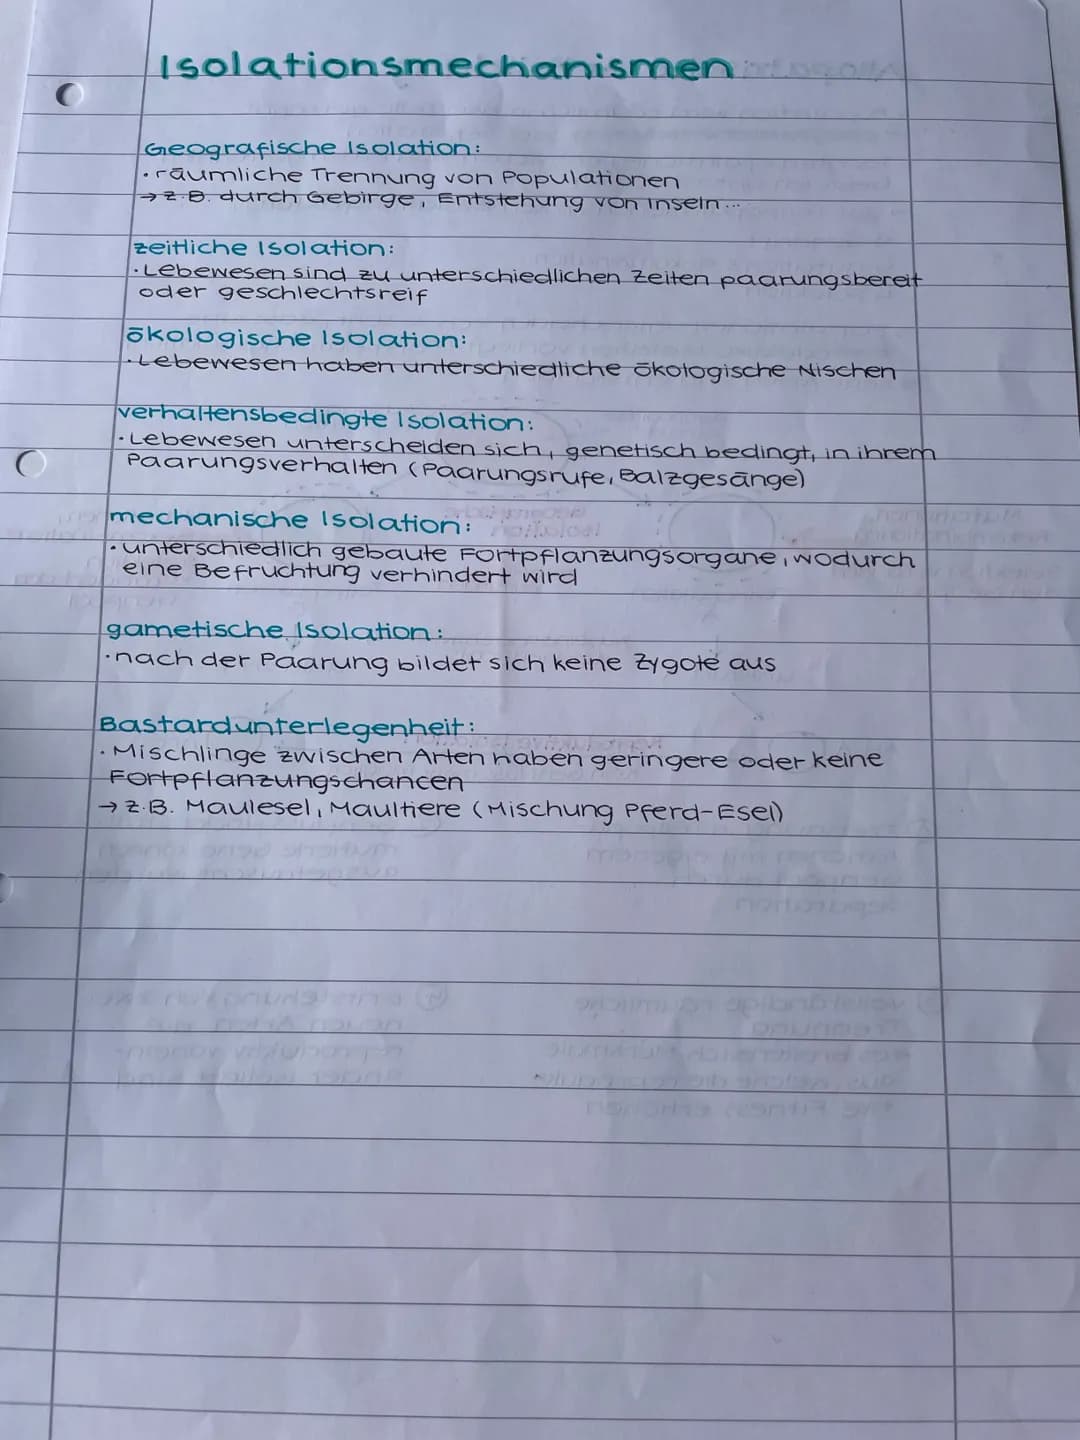 Isolationsmechanismen
Geografische Isolation:
· räumliche Trennung von Populationen
→ z.B. durch Gebirge, Entstehung von Inseln...
zeitliche Isolation:
· Lebewesen sind zu unterschiedlichen Zeiten paarungsbereit
oder geschlechtsreif
ökologische Isolation:
· Lebewesen haben unterschiedliche ökologische Nischen
verhaltensbedingte Isolation:
· Lebewesen unterscheiden sich, genetisch bedingt, in ihrem
Paarungsverhalten (Paarungsrufe, Balzgesänge)
mechanische Isolation:
· unterschiedlich gebaute Fortpflanzungsorgane, wodurch
eine Befruchtung verhindert wird
gametische Isolation:
· nach der Paarung bildet sich keine Zygote aus
Bastardunterlegenheit:
· Mischlinge zwischen Arten haben geringere oder keine
Fortpflanzungschancen
→ z.B. Maulesel, Maultiere (Mischung Pferd-Esel)